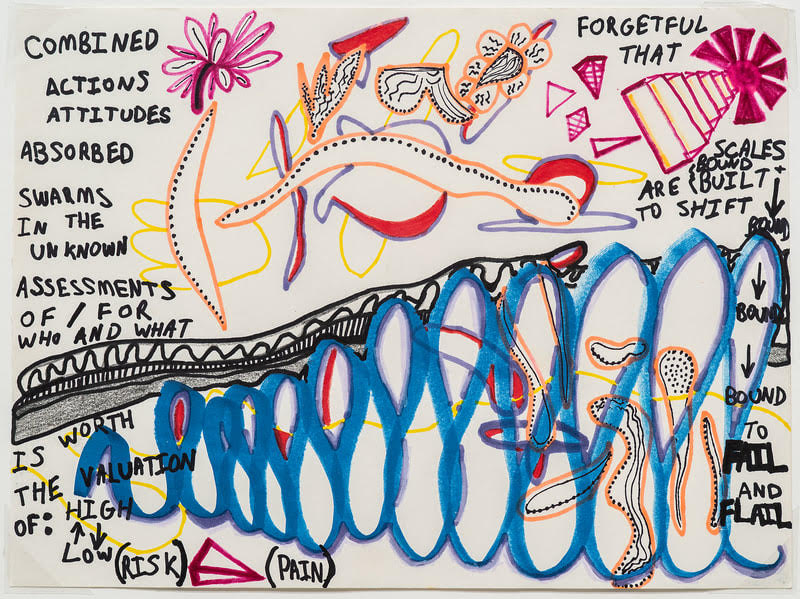 COMBINED
ACTIONS
ATTITUDES
ABSORBED
SWARMS
IN THE
UNKNOWN
ASSESSMENTS
OF / FOR
WHO AND WHAT
WORTH
IS VALUATION
THE
OF: HIGH
↑↓
LOW (RISK) (PAIN)
FORGETFUL
THAT
SCALES
BOUND +
ARE BUILT
TO SHIFT
↓
BOUND
↓
BOUND
↓
BOUND
TO
FAIL
AND
FLAIL